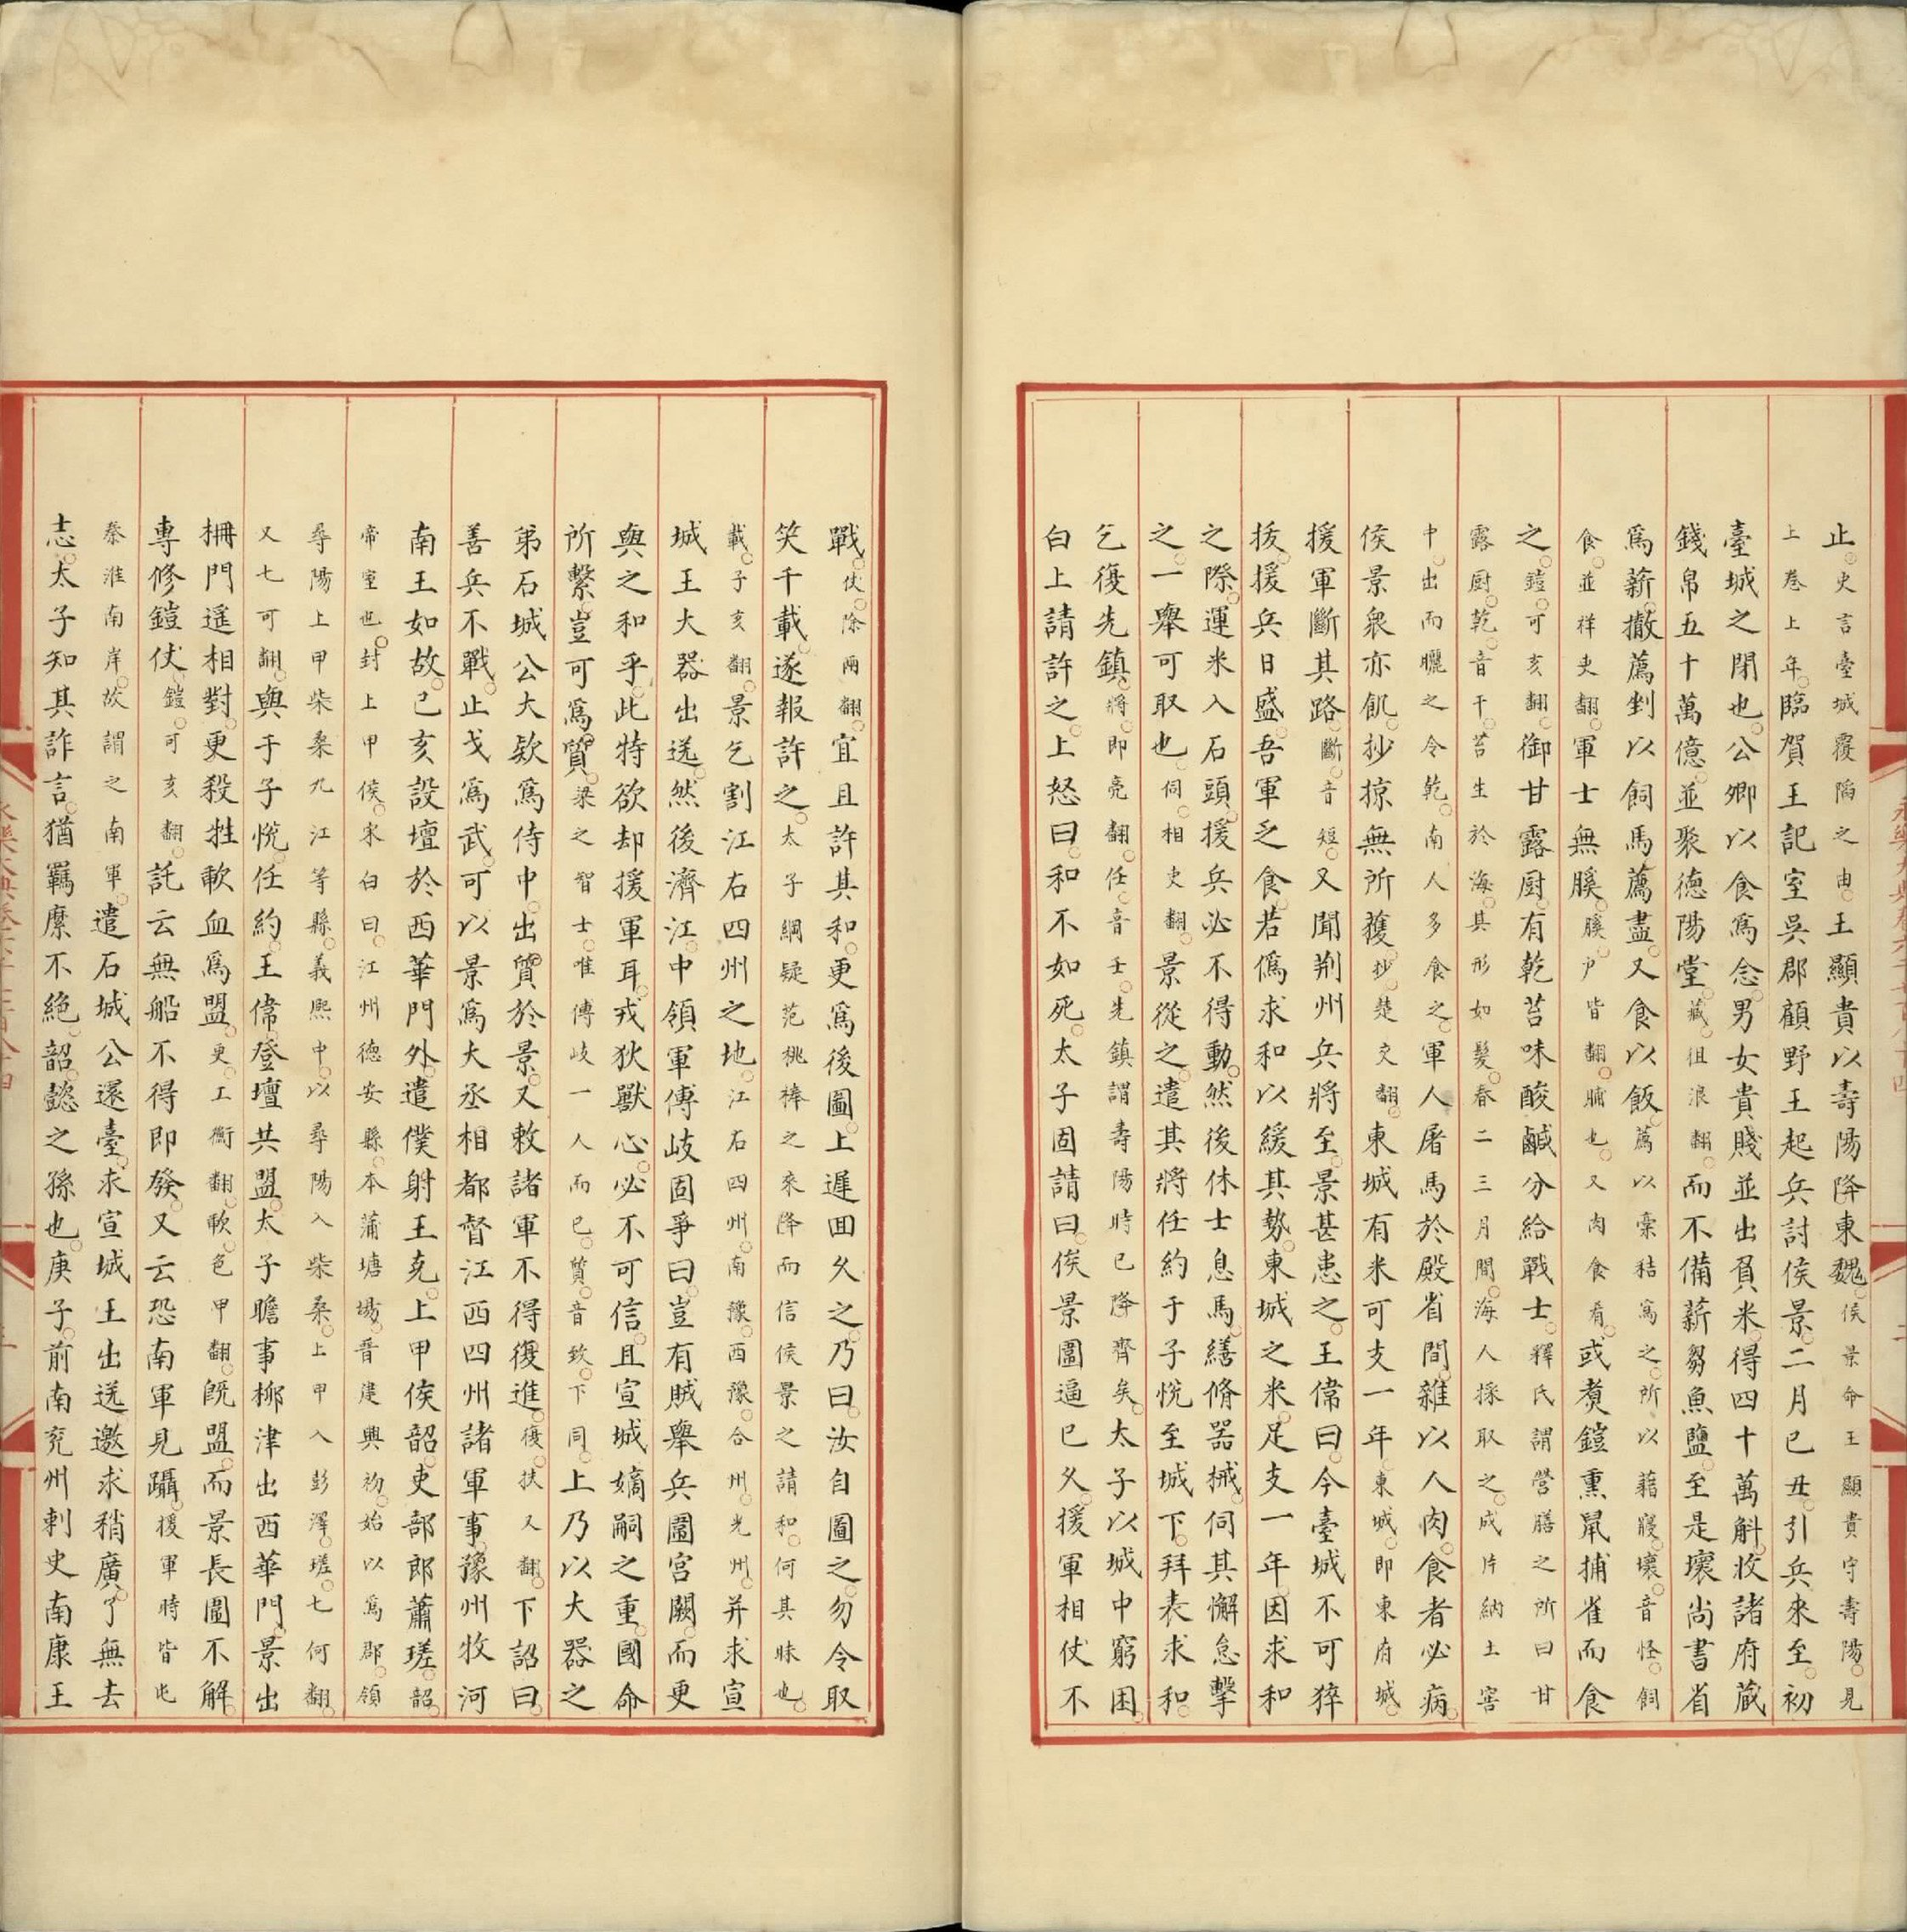 止史言臺城覆陷之由王顯貴以壽陽降東魏侯景命王顯貴守壽陽見
上卷上年臨賀王記室吳郡顧野王起兵討侯景二月己丑引兵來至初
臺城之閉也公卿以食爲念男女貴賤並出負米得四十萬斛收諸府蔵
錢帛五十萬億並聚德陽堂藏徂浪翻而不備薪芻魚鹽至是壞尚書省
爲薪撤薦剉以飼馬薦盡又食以飯薦以稾秸寫之所以藉寢壞音怪飼
食並祥吏翻軍士無膎膎戸皆翻脯也又肉食肴或煑鎧熏鼠捕雀而食
之鎧可亥翻御甘露厨有乾苔味酸鹹分給戰士釋氏謂營膳之所曰甘
露厨乾音干苔生於海其形如髮春二三月間海人採取之成片納土窖
中出而曬之令乾南人多食之軍人屠馬於殿省間雜以人肉食者必病
侯景衆亦飢抄掠無所獲抄楚交翻東城有米可支一年東城即東府城
援軍斷其路斷音短又聞荆州兵將至景甚患之王偉曰今臺城不可猝
拔援兵日盛吾軍乏食若僞求和以緩其勢東城之米足支一年因求和
之際運米入石頭援兵必不得動然後休士息馬繕脩器械伺其懈怠擊
之一舉可取也伺相吏翻景從之遣其將任約于子悦至城下拜表求和
乞復先鎮將即亮翻任音壬先鎮謂壽陽時已降齊矣太子以城中窮困
白上請許之上怒曰和不如死太子固請曰侯景圍逼已久援軍相仗不
戰仗除兩翻宜且許其和更爲後圖上遲回久之乃曰汝自圖之勿令取
笑千載遂報許之太子綱疑范桃棒之來降而信侯景之請和何其昧也
載子亥翻景乞割江右四州之地江右四州南豫西豫合州光州并求宣
城王大器出送然後濟江中領軍傅岐固爭曰豈有賊舉兵圍宮闕而更
與之和乎此特欲却援軍耳戎狄獸心必不可信且宣城嫡嗣之重國命
所繫豈可爲質梁之智士唯傅岐一人而已質音致下同上乃以大器之
弟石城公大欵爲侍中出質於景又敕諸軍不得復進復扶又翻下詔曰
善兵不戰止戈爲武可以景爲大丞相都督江西四州諸軍事豫州牧河
南王如故己亥設壇於西華門外遣僕射王克上甲侯韶吏部郎蕭瑳韶
帝室也封上甲侯宋白曰江州德安縣本蒲塘場晋建興初始以爲郡領
尋陽上甲柴桑九江等縣義熙中以尋陽入柴桑上甲入彭澤瑳七何翻
又七可翻與于子悦任約王偉登壇共盟太子瞻事柳津出西華門景出
柵門遥相對更殺牲歃血爲盟更工衡翻歃色甲翻旣盟而景長圍不解
專修鎧仗鎧可亥翻託云無船不得即發又云恐南軍見躡援軍時皆屯
秦淮南岸故謂之南軍遣石城公還臺求宣城王出送邀求稍廣了無去
志太子知其詐言猶羈縻不絶韶懿之孫也庚子前南兖州刺史南康王